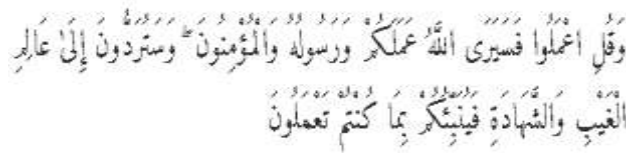 وَقُلِ اعْمَلُوا فَسَيَرَى اللَّهُ عَمَلَكُمْ وَرَسُولُهُ وَالْمُؤْمِنُونَ ۖ وَسَتُرَدُّونَ إِلَىٰ عَالِمِ
الْغَيْبِ وَالشَّهَادَةِ فَيُنَبِّئُكُمْ بِمَا كُنْتُمْ تَعْمَلُونَ